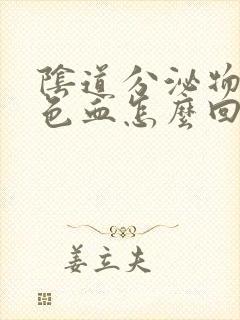 陰道分泌物
色血怎麼回
姜立夫